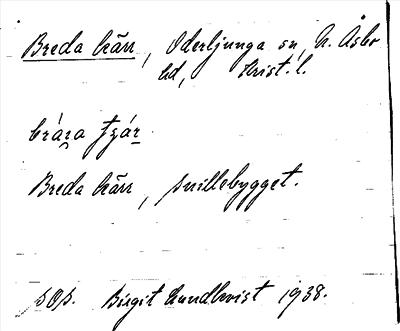 Breda kärr, Oderljunga sn, N. Åsbo
hd, Krist. l.
brára tjár
Breda kärr, snillebygget.
sOs. Birgit Lundkvist 1938.